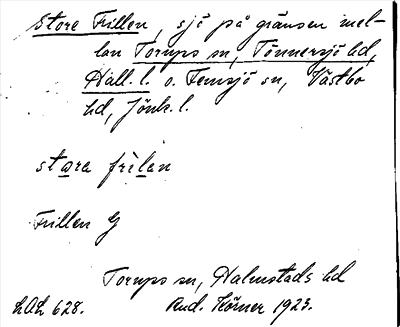 Store Frillen, sjö på gränsen mel-
lan Torups sn, Tönnersjö hd,
Hall. l. o. Femsjö sn, Västbo
hd, Jönk. l.
stora frilan
Frillen G
Torups sn, Halmstads hd
LAL 628. Rud. Körner 1923.